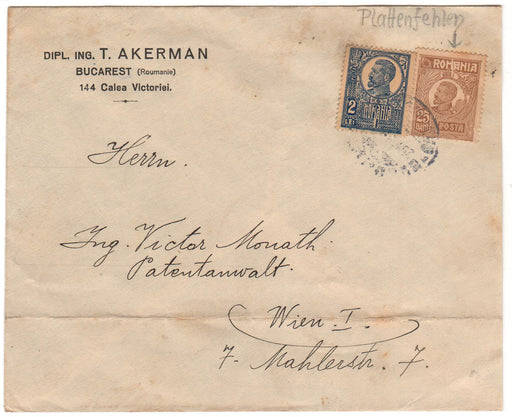 Plattenfehler
DIPL. ING. T. AKERMAN
BUCAREST (Roumanie)
144 Calea Victoriei.
2
LEI
ROMANIA
ROMANIA
25
BANI
POSTA
Herrn.
Ing. Victor Monath.
Patentanwalt.
Wien I.
7. Mahlerstr. 7.